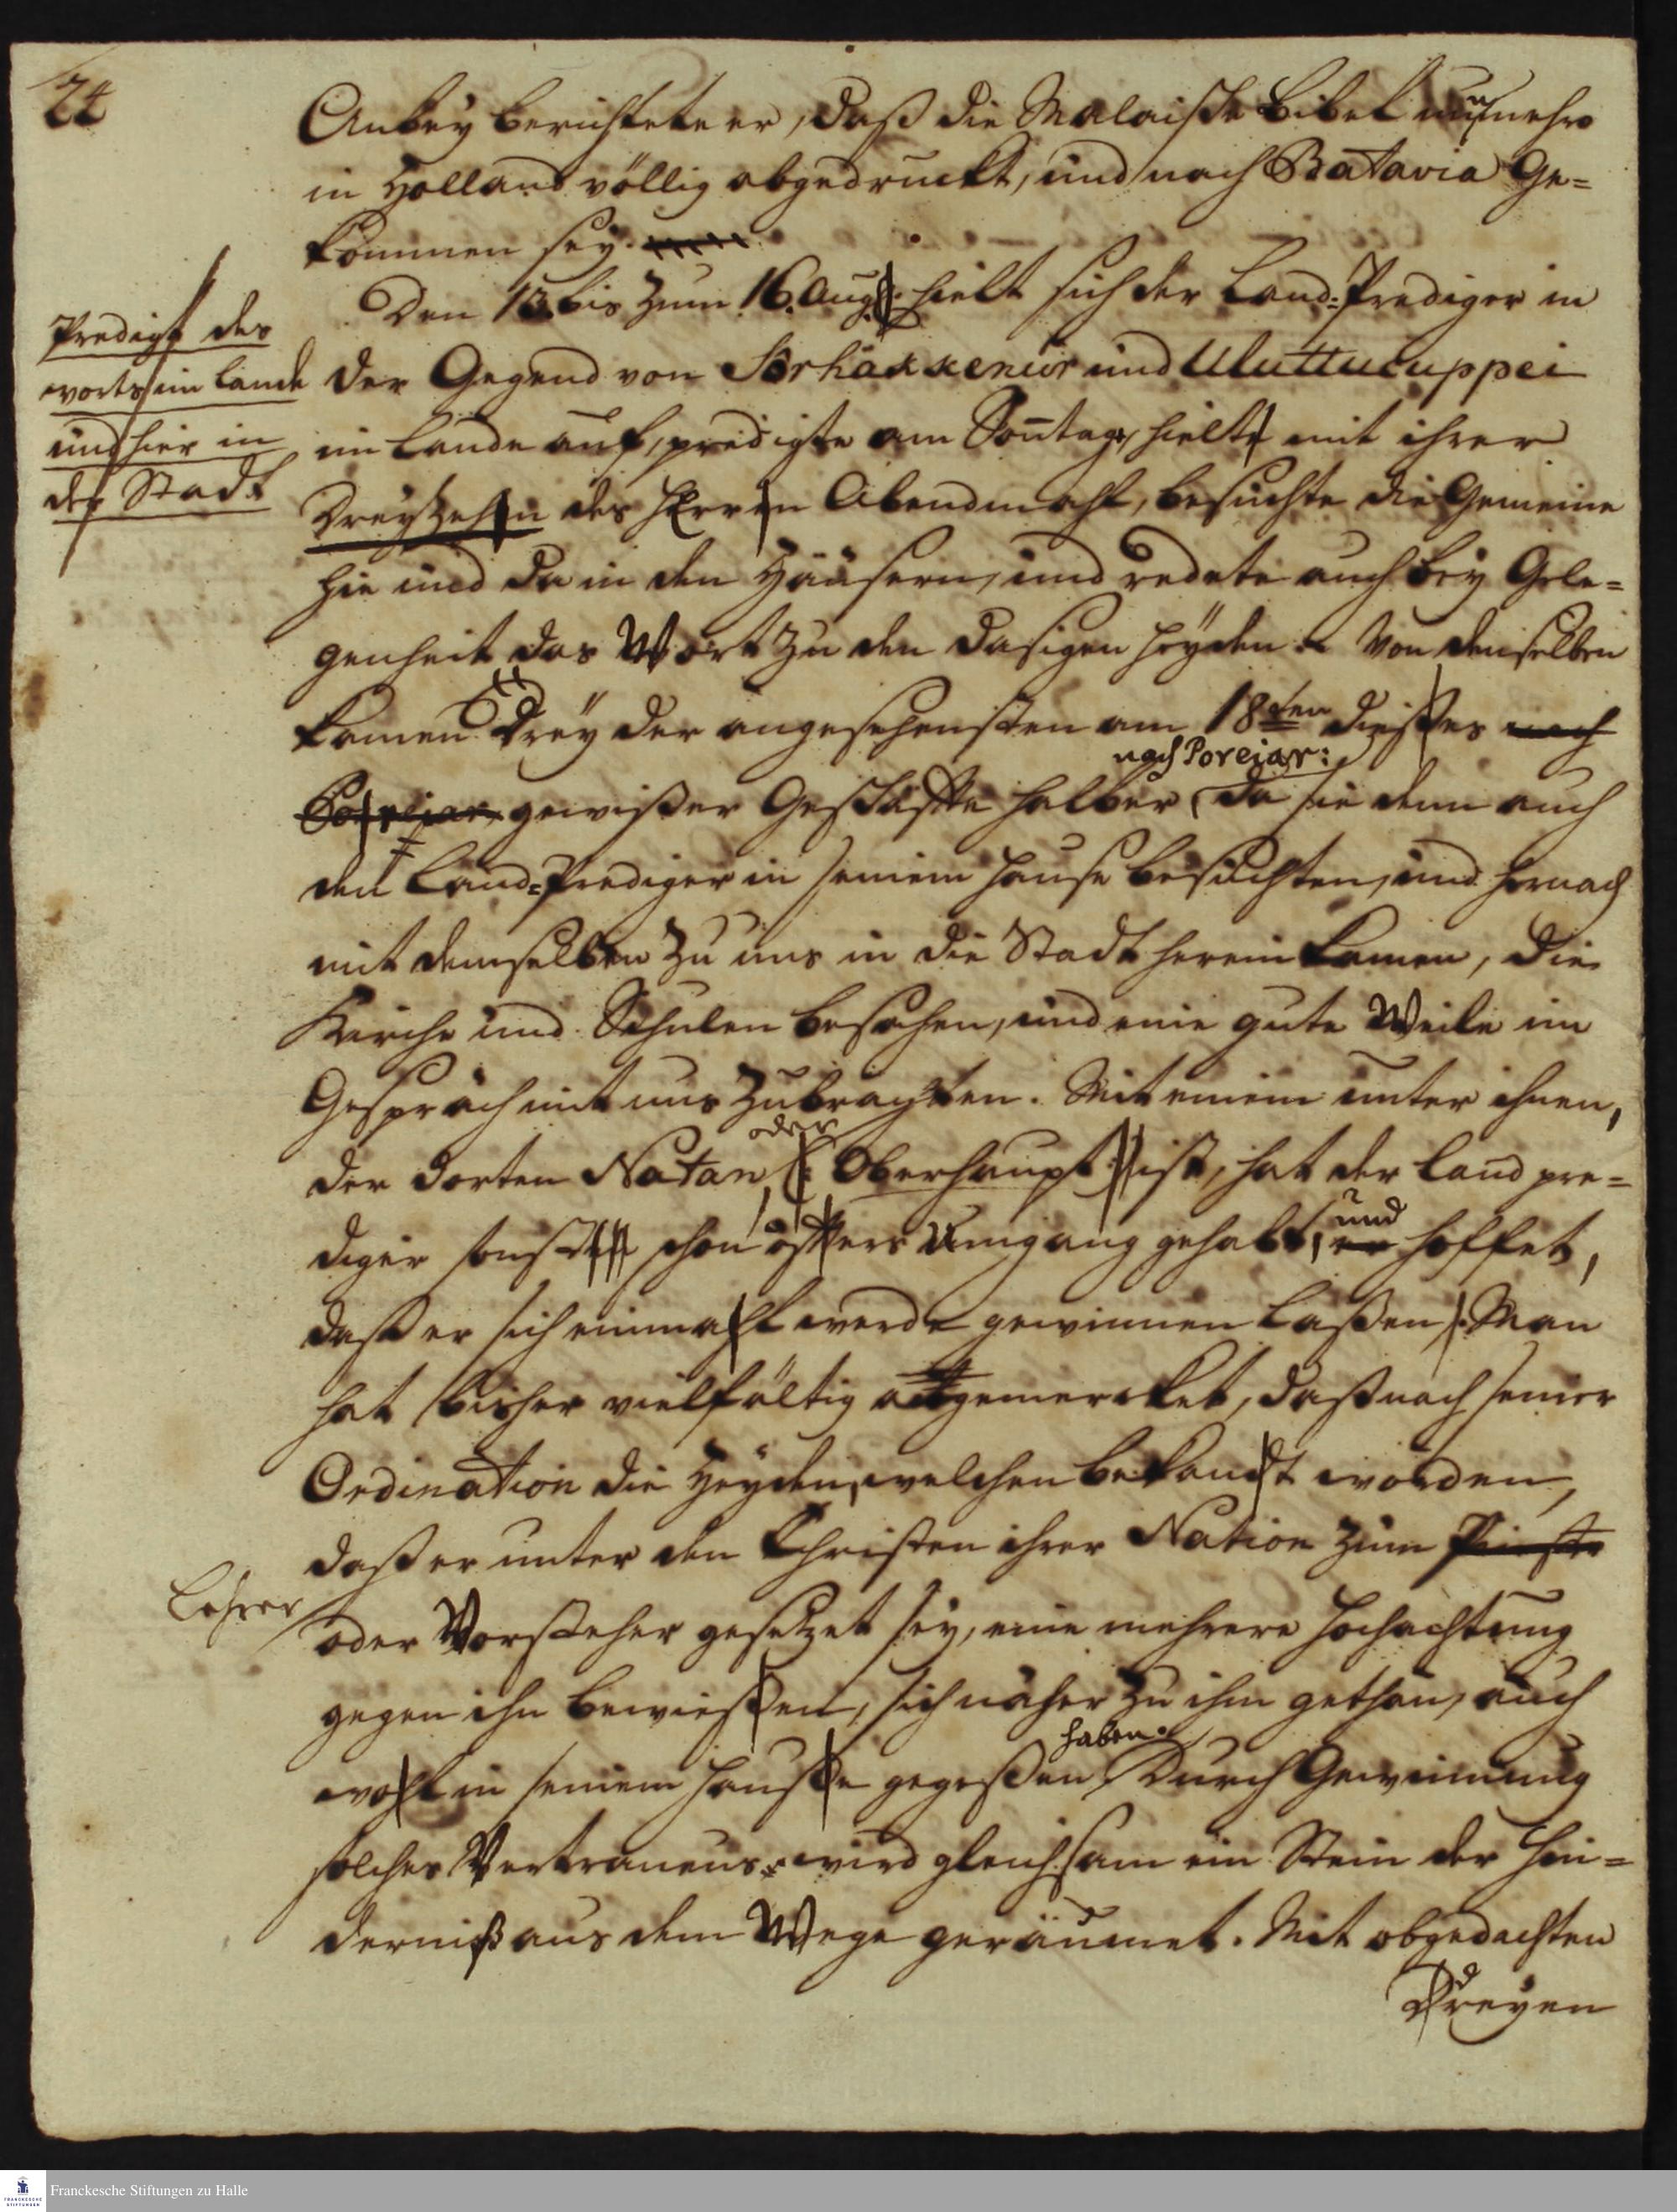 24
Anbey berichtete er, daß die Malaische Bibel nunmehro
in Holland völlig abgedruckt, und nach Batavia Ge=
kommen sey.
Den 13. bis zum 16. Aug. hielt sich der Land=Prediger in
Predigt des
worts im Lande
und hier in
der Stadt
der Gegend von und Uluttucuppei
im Lande auf, predigte am Sontage, hielte mit ihrer
Dreyzehen des HErren Abendmahl, besuchte die Gemeine
hie und da in den Häusern, und redete auch bey Gele=
genheit das Wort zu den dasigen Heyden. Von denselben
kamen Drey der angesehensten am 18ten dießes nach
nach Poreiar:
Poreiar, gewißer Geschäffte halber, da sie denn auch
den Land=Prediger in seinem Hause besuchten, und hernach
mit demselben zu uns in die Stadt herein kamen, die
Kirche und Schulen besahen, und eine gute Weile im
Gespräch mit uns zubrachten. Mit einem unter ihnen,
oder
der dorten Natan (: Oberhaupt :) ist, hat der Land pre=
und
diger sonst schon öffters Umgang gehabt, er hoffet,
daß er sich einmahl werde gewinnen laßen. Man
hat bisher vielfältig angemercket, daß nach seiner
Ordination die Heyden, welchen bekandt worden,
daß er unter den Christen ihrer Nation zum Priester
Lehrer
oder Vorsteher gesetzet sey, eine mehrere Hochachtung
gegen ihn bewießen, sich näher zu ihm gethan, auch
haben.
wohl in seinem Hauße gegeßen. Durch Gewinnung
solches Vertrauens wird gleichsam ein Stein der Hin=
derniß aus dem Wege geräumet. Mit obgedachten
Dreyen
Franckesche Stiftungen zu Halle